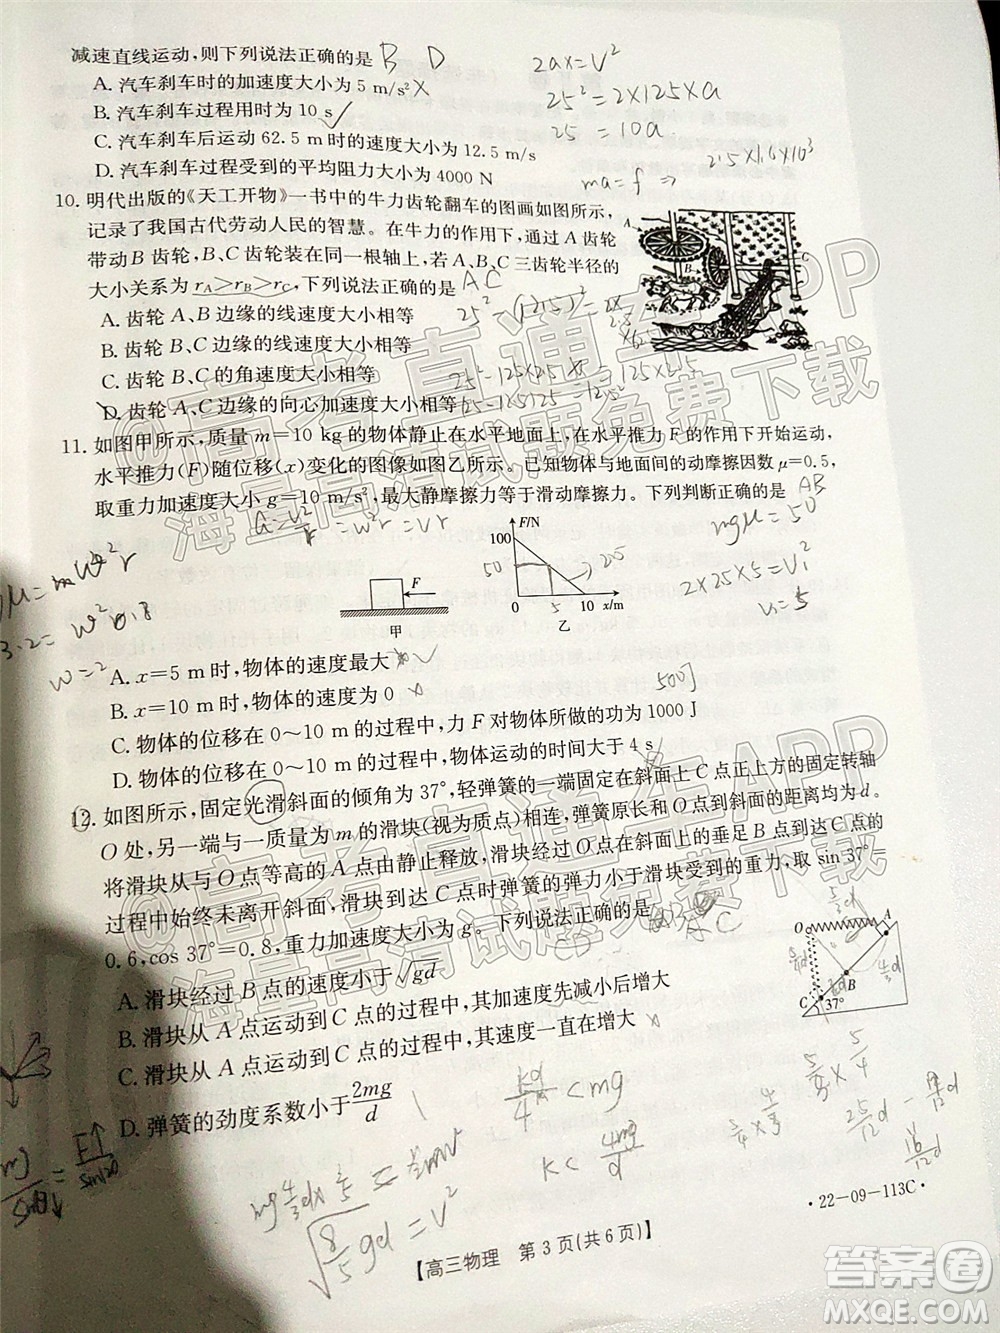 减速直线运动,则下列说法正确的是 B D
2ax=v²
A. 汽车刹车时的加速度大小为5 m/s² ×
25²=2×125×a
B. 汽车刹车过程用时为10 s ✓
25=10a
C. 汽车刹车后运动 62.5 m时的速度大小为12.5 m/s
2.5×1.6×10³
D. 汽车刹车过程受到的平均阻力大小为4000 N
ma=f ⇒
10. 明代出版的《天工开物》一书中的牛力齿轮翻车的图画如图所示,
记录了我国古代劳动人民的智慧。在牛力的作用下,通过A齿轮
带动B齿轮,B、C齿轮装在同一根轴上,若A、B、C三齿轮半径的
大小关系为rA>rB>rC,下列说法正确的是 AC
A B C
A. 齿轮A、B边缘的线速度大小相等
B. 齿轮B、C边缘的线速度大小相等
C. 齿轮B、C的角速度大小相等
D. 齿轮A、C边缘的向心加速度大小相等
11. 如图甲所示,质量m=10 kg的物体静止在水平地面上,在水平推力F的作用下开始运动,
水平推力(F)随位移(x)变化的图像如图乙所示。已知物体与地面间的动摩擦因数μ=0.5,
取重力加速度大小g=10 m/s²,最大静摩擦力等于滑动摩擦力。下列判断正确的是 AB
mgμ=50
=w²r=vr
F/N
100
50
0 5 10 x/m
F
甲
乙
2×25×5=v₁²
v₁=5
w=2
A. x=5 m时,物体的速度最大 ✓
B. x=10 m时,物体的速度为0 ×
500J
C. 物体的位移在0～10 m的过程中,力F对物体所做的功为1000 J
D. 物体的位移在0～10 m的过程中,物体运动的时间大于4 s
12. 如图所示,固定光滑斜面的倾角为37°,轻弹簧的一端固定在斜面上C点正上方的固定转轴
O处,另一端与一质量为m的滑块(视为质点)相连,弹簧原长和O点到斜面的垂直距离均为d。
将滑块从与O点等高的A点由静止释放,滑块经过O点在斜面上的垂足B点到达C点的
过程中始终未离开斜面,滑块到达C点时弹簧的弹力小于滑块受到的重力,取sin 37°=
0.6,cos 37°=0.8,重力加速度大小为g。下列说法正确的是 AC
CD
O A B C 37°
A. 滑块经过B点的速度小于√gd
B. 滑块从A点运动到C点的过程中,其加速度先减小后增大
C. 滑块从A点运动到C点的过程中,其速度一直在增大 ×
D. 弹簧的劲度系数小于2mg/d
kd/4 <mg
k< 4mg/d
√8/5gd=v²
【高三物理 第3页(共6页)】
·22-09-113C·
@高考直通车APP
海量高清试题免费下载
@高考直通车APP
海量高清试题免费下载
答案圈
MXQE.COM